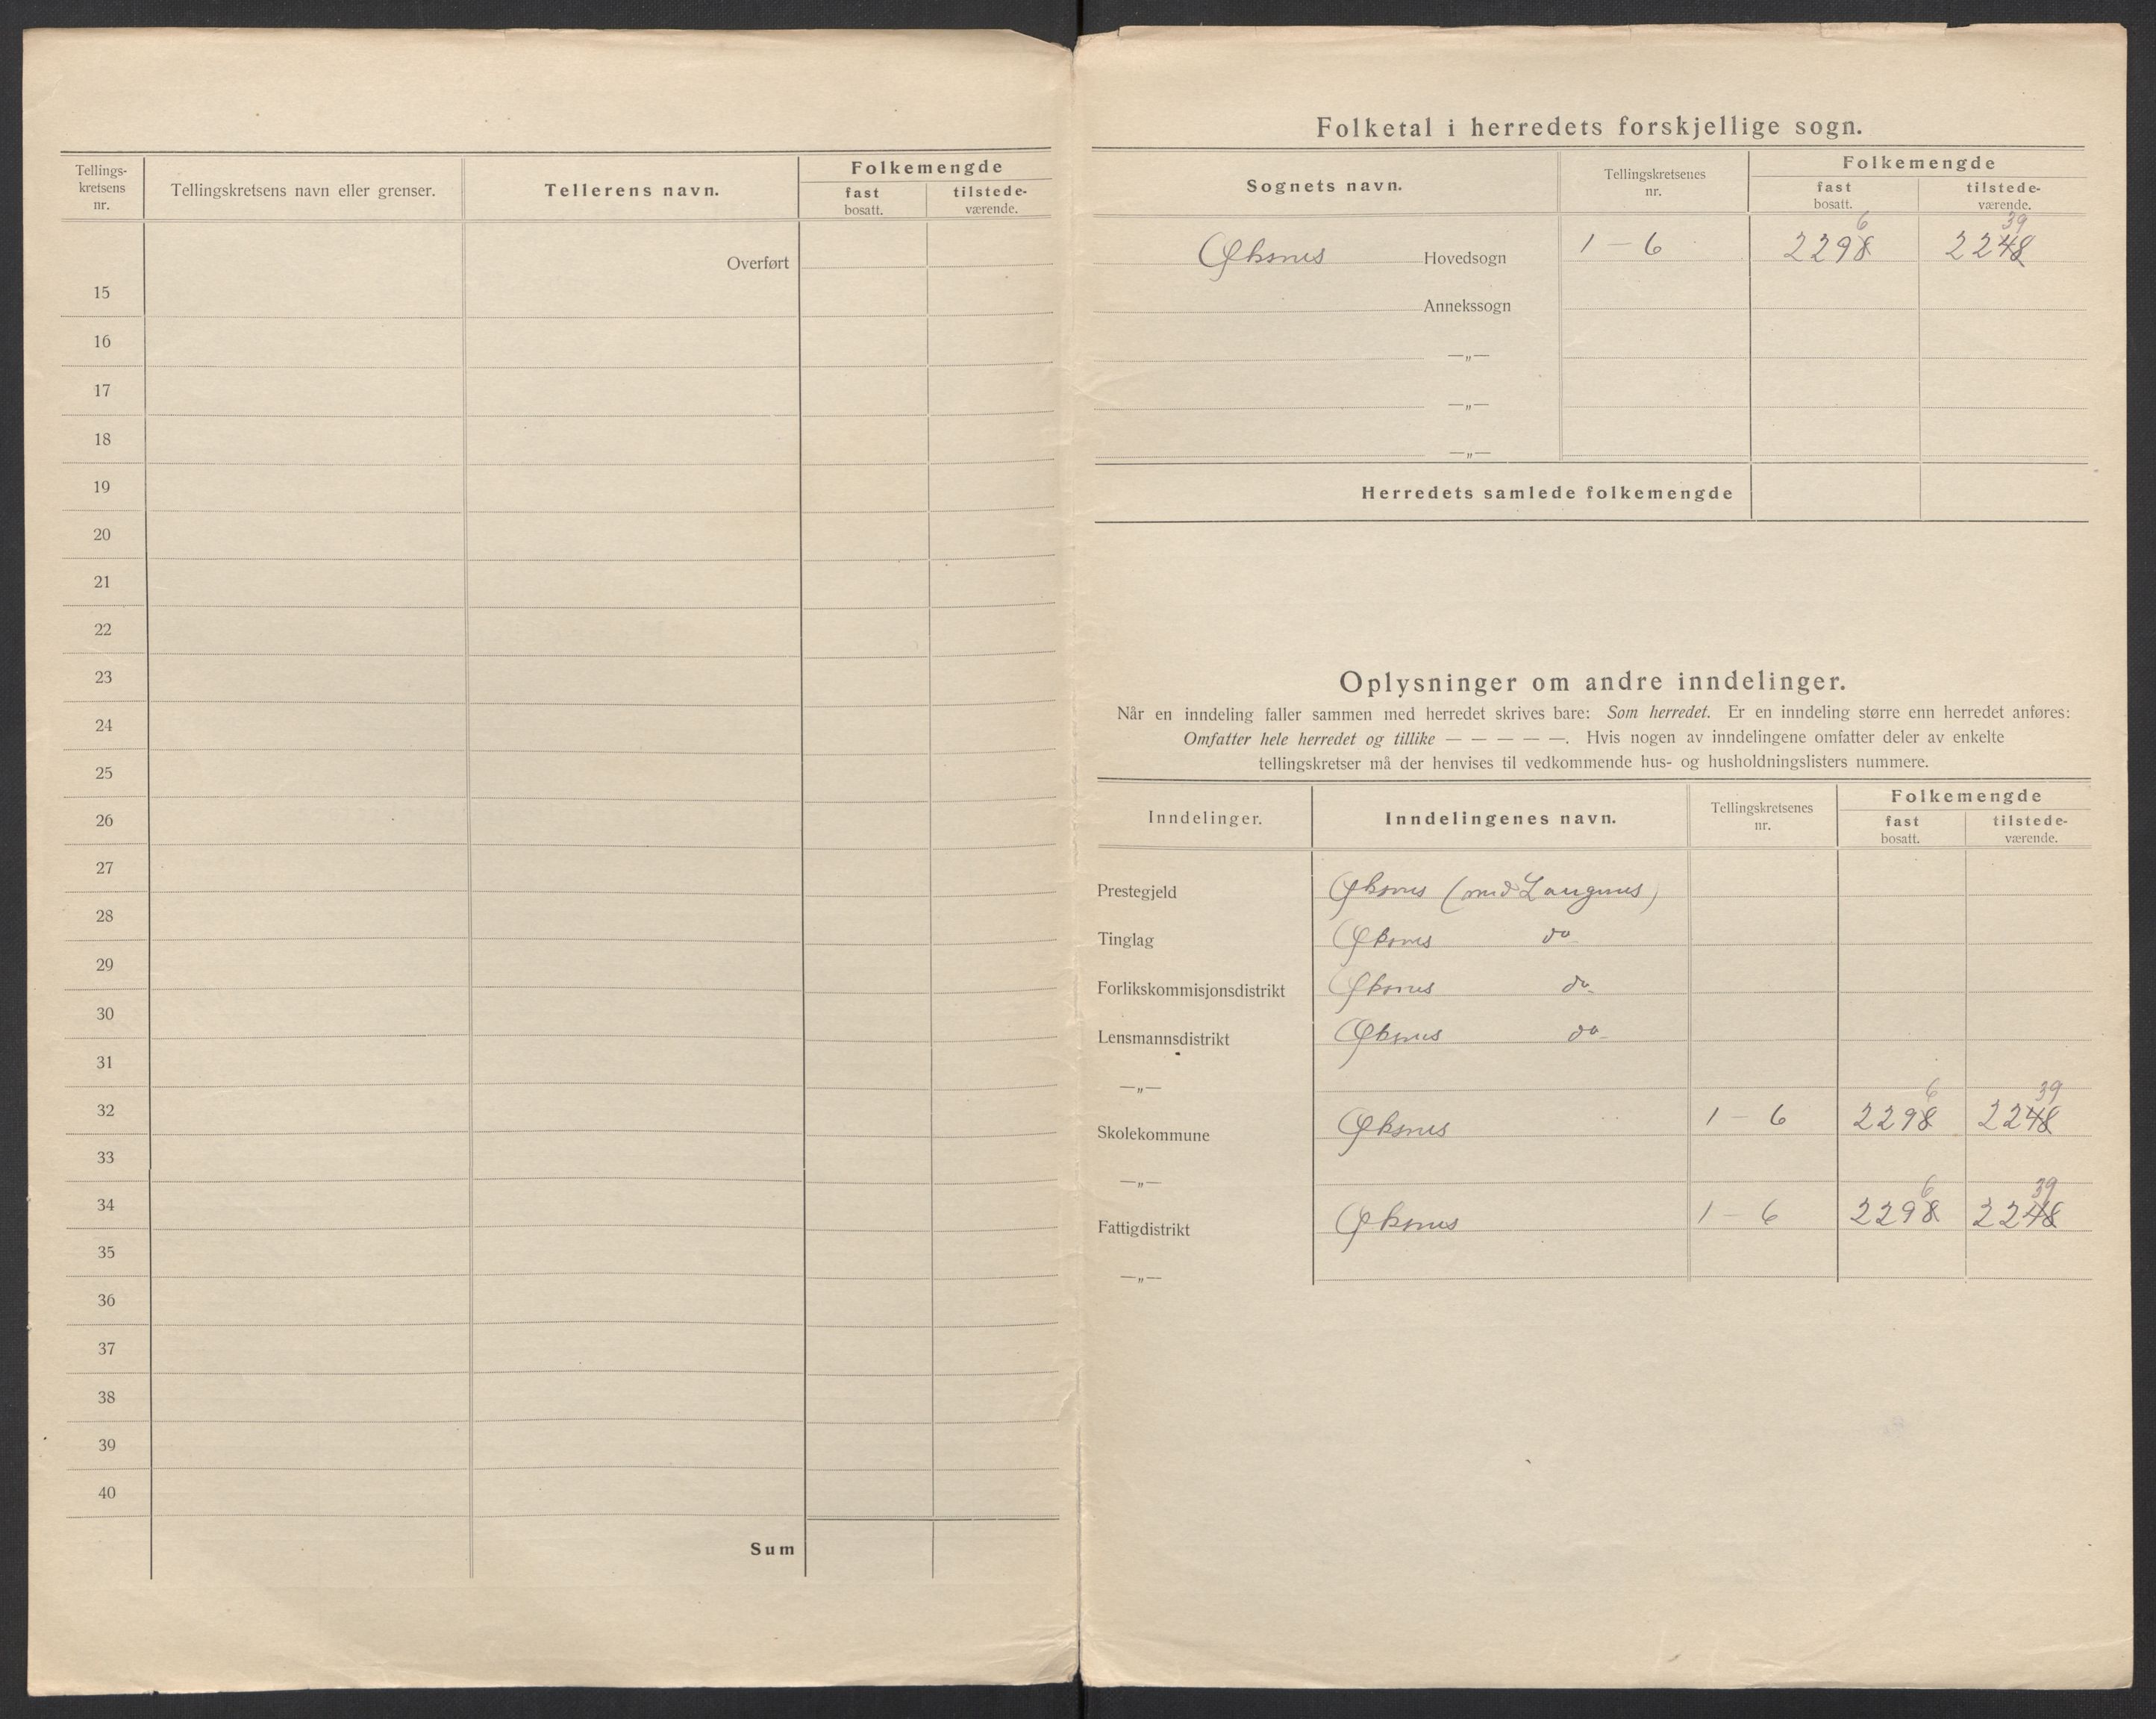 Tellings-
kretsens
nr.
Tellingskretsens navn eller grenser.
Tellerens navn.
Folkemengde
fast
bosatt.
tilstede-
værende.
Overført
15
16
17
18
19
20
21
22
23
24
25
26
27
28
29
30
31
32
33
34
35
36
37
38
39
40
Sum
Folketal i herredets forskjellige sogn.
Sognets navn.
Tellingskretsenes
nr.
Folkemengde
fast
bosatt.
tilstede-
værende.
6 39
Øksnes Hovedsogn 1 - 6 2298 2248
Annekssogn
—„—
—„—
—„—
Herredets samlede folkemengde
Oplysninger om andre inndelinger.
Når en inndeling faller sammen med herredet skrives bare: Som herredet. Er en inndeling større enn herredet anføres:
Omfatter hele herredet og tillike — — — — —. Hvis nogen av inndelingene omfatter deler av enkelte
tellingskretser må der henvises til vedkommende hus- og husholdningslisters nummere.
Inndelinger.
Inndelingenes navn.
Tellingskretsenes
nr.
Folkemengde
fast
bosatt.
tilstede-
værende.
Prestegjeld Øksnes (med Langenes)
Tinglag Øksnes do
Forlikskommisjonsdistrikt Øksnes do.
Lensmannsdistrikt Øksnes do
—„—
6 39
Skolekommune Øksnes 1 - 6 2298 2248
—„—
6 39
Fattigdistrikt Øksnes 1 - 6 2298 2248
—„—